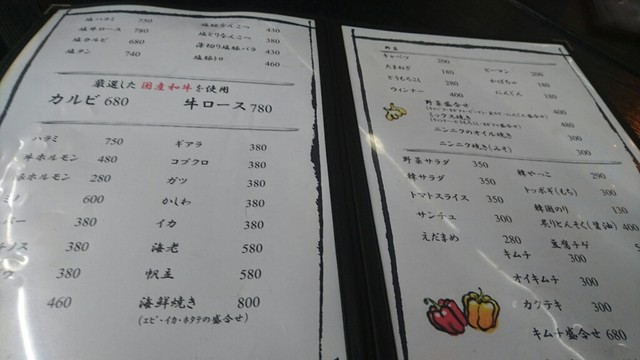 塩ハラミ 750
塩牛ロース 780
塩カルビ 680
塩タン 740
430
塩とりなんこつ 380
薄切り塩豚バラ 430
塩豚トロ 460
厳選した 国産和牛 を使用
カルビ 680 牛ロース 780
ハラミ 750
ホルモン 480
ホルモン 280
ミノ 600
380
380
380
460
ギアラ 380
コブクロ 380
ガツ 380
かしわ 380
イカ 380
海老 580
帆立 580
海鮮焼き 800
(エビ・イカ・ホタテの盛合せ)
野菜
キャベツ 200
たまねぎ 180
とうもろこし 280
ウィンナー 400
ピーマン 200
かぼちゃ 180
にんじん 180
野菜盛合せ 400
ミックス焼き 480
ニンニクのオイル焼き 300
ニンニク焼き(みそ) 300
野菜サラダ 350
韓サラダ 350
トマトスライス 350
サンチュ 300
えだまめ 280
韓やっこ 290
トッポギ(もち) 300
韓国のり 130
炙りとんそく(醤油) 400
豆腐チゲ
キムチ 300
オイキムチ 300
カクテキ 300
キムチ盛合せ 680